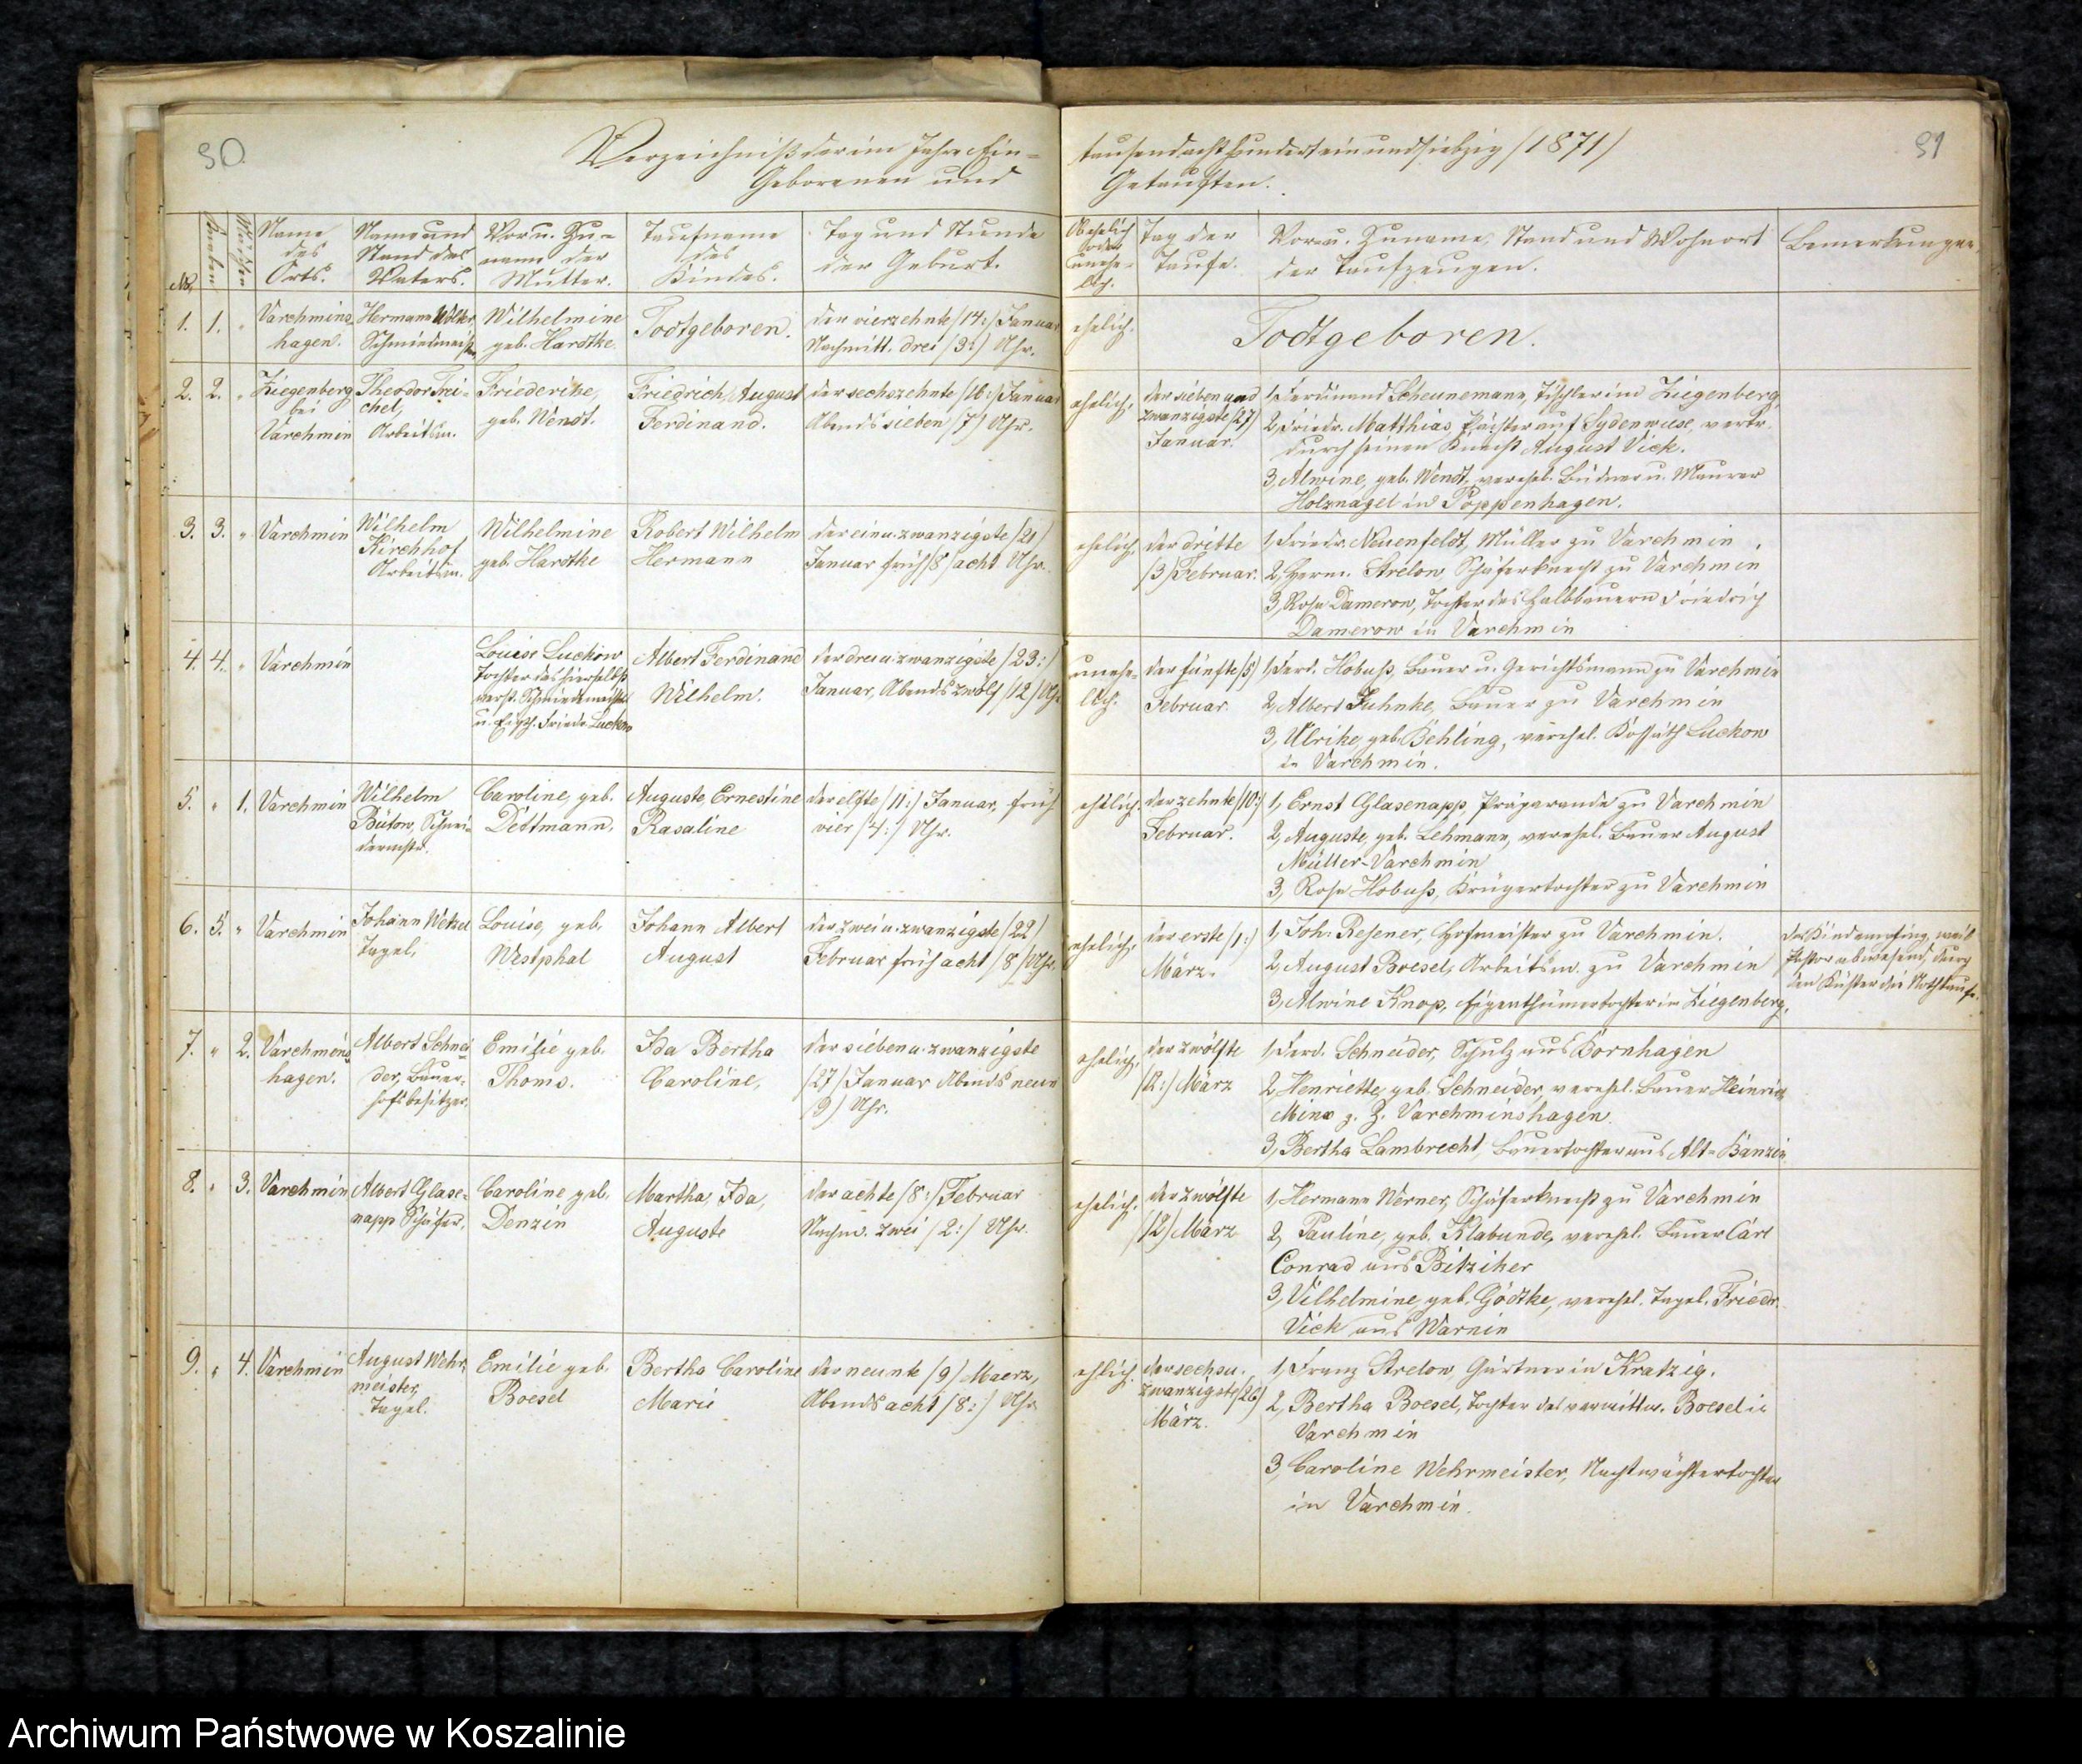 90.
Verzeichniß der im Jahre Ein-
Geborenen und
No.
Knaben
Mädchen
Name
des
Orts.
Name und
Stand des
Vaters.
Vor u. Zu-
name der
Mutter.
Taufname
des
Kindes.
Tag und Stunde
der Geburt.
1. 1. "
Varchmins
hagen.
Hermann Wolter,
Schmiedmeister
Wilhelmine
geb. Hardtke.
Todtgeboren.
der vierzehnte /14:/ Januar
Nachmitt. drei /3:/ Uhr.
2. 2. "
Ziegenberg
bei
Varchmin
Theodor Trei-
chel,
Arbeitsm.
Friederike,
geb. Wendt.
Friedrich August
Ferdinand.
der sechszehnte /16:/ Januar
Abends sieben /7/ Uhr.
3. 3. " Varchmin
Wilhelm
Kirchhof
Arbeitsm.
Wilhelmine
geb. Hardtke
Robert Wilhelm
Hermann
der ein u. zwanzigste /21/
Januar früh /8/ acht Uhr.
4. 4. " Varchmin
Louise Luckow
Tochter des hierselbst
verst. Schmiedemeister
u. Eigth. Friedr. Luckow
Albert Ferdinand
Wilhelm.
der drei u. zwanzigste /23:/
Januar, Abends zwölf /12/ Uhr
5. " 1. Varchmin
Wilhelm
Bütow, Schnei-
dermstr.
Caroline, geb.
Dettmann.
Auguste, Ernestine
Rasaline
der elfte /11:/ Januar, früh
vier /4:/ Uhr.
6. 5. " Varchmin
Johann Wetzel
Tagel.
Louise, geb.
Westphal
Johann Albert
August
der zwei u. zwanzigste /22/
Februar früh acht /8/ Uhr.
7. " 2. Varchmins
hagen.
Albert Schnei-
der, Bauer-
hofsbesitzer.
Emilie geb.
Thoms.
Ida Bertha
Caroline,
der sieben u. zwanzigste
/27/ Januar Abends neun
/9/ Uhr.
8. " 3. Varchmin
Albert Glase-
napp Schäfer.
Caroline geb.
Denzin
Martha, Ida,
Auguste
der achte /8:/ Februar
Nachm. zwei /2:/ Uhr.
9. " 4. Varchmin
August Wehr-
meister,
Tagel.
Emilie geb.
Boesel
Bertha Caroline
Marie
der neunte /9/ Maerz,
Abends acht /8:/ Uhr
tausendachthunderteinundsiebzig /1871/
91
Getauften.
Ob ehelich
oder
unehe-
lich.
Tag der
Taufe.
Vor- u. Zuname, Stand und Wohnort
der Taufzeugen.
Bemerkungen.
ehelich.
Todtgeboren.
ehelich.
der sieben und
zwanzigste /27/
Januar.
1, Ferdinand Scheunemann, Tischler in Ziegenberg,
2, Friedr. Matthias, Pächter auf Sydenwiese, vertr.
durch seinen Knecht August Vick.
3, Alwine, geb. Wendt, verehel. Büdner u. Maurer
Holznagel in Poppenhagen.
ehelich.
der dritte
/3/ Februar.
1, Friedr. Neuenfeldt, Müller zu Varchmin,
2, Herm. Strelow Schäferknecht zu Varchmin
3, Rosa Damerow, Tochter des Halbbauern Friedrich
Damerow in Varchmin
unehe-
lich.
der fünfte /5/
Februar.
1, Ferd. Hobuß, Bauer u. Gerichtsmann zu Varchmin
2, Albert Juhnke, Bauer zu Varchmin
3, Ulrike, geb. Behling, verehel. Kossäth Luckow
in Varchmin.
ehelich.
der zehnte /10:/
Februar.
1, Ernst Glasenapp, Präparande zu Varchmin
2, Auguste, geb. Lehmann, verehel. Bauer August
Müller-Varchmin
3, Rosa Hobuß, Krügertochter zu Varchmin
ehelich.
der erste /1:/
März.
1, Joh. Resener, Hofmeister zu Varchmin.
2, August Boesel, Arbeitsm. zu Varchmin
3, Alwine Knop, Eigenthümertochter in Ziegenberg.
Das Kind empfing, weil
Pastor abwesend, durch
den Küster die Nothtaufe.
ehelich.
der zwölfte
/12:/ März
1, Ferd. Schneider, Schulz aus Bornhagen
2, Henriette, geb. Schneider, verehel. Bauer Heinrich
Minx z. Z. Varchminshagen.
3, Bertha Lambrecht, Bauertochter aus Alt-Banzin
ehelich.
der zwölfte
/12/ März
1, Hermann Werner, Schäferknecht zu Varchmin
2, Pauline, geb. Klabunde, verehel. Bauer Carl
Conrad aus Bitziker
3, Wilhelmine, geb. Gödtke, verehel. Tagel. Friedr.
Vick aus Warnin
ehlich.
der sechs u.
zwanzigste /26/
März.
1, Franz Strelow, Gärtner in Kratzig.
2, Bertha Boesel, Tochter der verwittw. Boesel in
Varchmin
3, Caroline Wehrmeister, Nachtwächtertochter
in Varchmin.
Archiwum Państwowe w Koszalinie